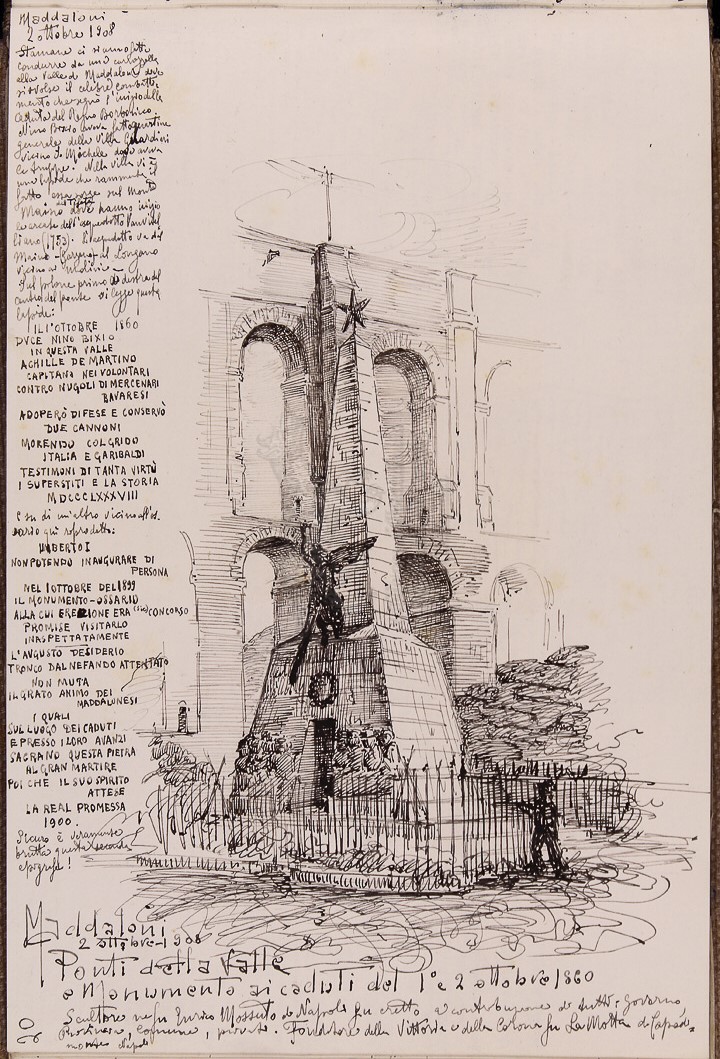 Maddaloni
2 ottobre 1908
Stamane ci siamo fatti
condurre da una carrozzella
alla Valle di Maddaloni dove
si svolse il celebre combatti-
mento che segnò l'inizio della
caduta del Regno Borbonico.
Nino Bixio aveva
generale della villa Gualdini
vicino S. Michele dove aveva
le truppe. Nella villa vi è
una lapide che rammenta il
fatto essa sorge sul Monte
Maino dove hanno inizio
le arcate dell'acquedotto Vanvitel
liano (1753). L'acquedotto va dal
Maino - al Longano
vicino ai Molini -
Sul pilone primo a destra del
centro del ponte si legge questa
lapide:
IL 1º OTTOBRE 1860
DVCE NINO BIXIO
IN QUESTA VALLE
ACHILLE DE MARTINO
CAPITANO NEI VOLONTARI
CONTRO NUGOLI DI MERCENARI
BAVARESI
ADOPERÒ DIFESE E CONSERVÒ
DUE CANNONI
MORENDO COL GRIDO
ITALIA E GARIBALDI
TESTIMONI DI TANTA VIRTÙ
I SUPERSTITI E LA STORIA
MDCCCLXXXVIII
E su di un'altro vicino all'os-
sario qui riprodotto:
UMBERTO I
NON POTENDO INAUGURARE DI
PERSONA
NEL 1 OTTOBRE DEL 1899
IL MONUMENTO-OSSARIO
ALLA CUI EREZIONE ERA (sic) CONCORSO
PROMISE VISITARLO
INASPETTATAMENTE
L'AVGUSTO DESIDERIO
TRONCO DAL NEFANDO ATTENTATO
NON MUTA
IL GRATO ANIMO DEI
MADDALUNESI
I QUALI
SUL LUOGO DEI CADUTI
E PRESSO I LORO AVANZI
SAGRANO QUESTA PIETRA
AL GRAN MARTIRE
POI CHE IL SUO SPIRITO
ATTESE
LA REAL PROMESSA
1900.
Sicuro è veramente
brutta questa seconda
epigrafe!
Maddaloni
2 ottobre 1908
Ponti della Valle
e Monumento ai caduti del 1º e 2 ottobre 1860
Scultore ne fu Enrico Mossuti di Napoli fu eretto a contribuzione di tutti: Governo
Provincia, comune, privati. Fonditore della Vittoria e della Corona fu La Motta di Capodi=
monte Napoli
90